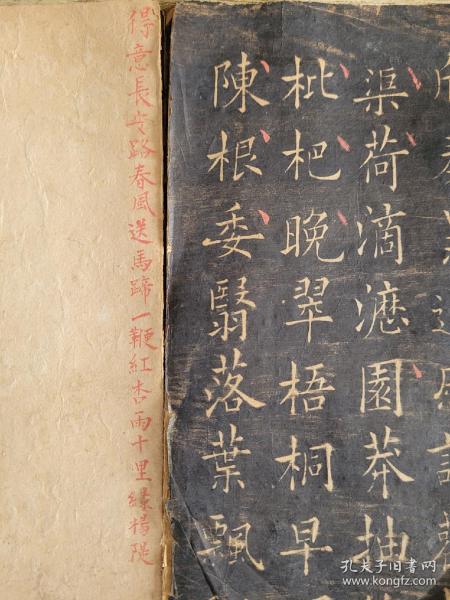 渠荷滴瀝園莽抽
枇杷晚翠梧桐早
陳根委翳落葉飄
得意長安路春風送馬蹄一鞭紅杏雨十里綠楊隄
孔夫子旧书网
www.kongfz.com